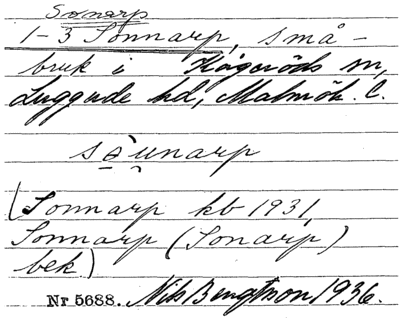 Sonarp
1-3 Sonnarp, små-
bruk i Kågeröds sn,
Luggude hd, Malmöh. l.
sǫ̀u̯narp
(Sonnarp kb 1931,
Sonnarp (Sonarp)
bek)
Nr 5688. Nils Bengtsson 1936.